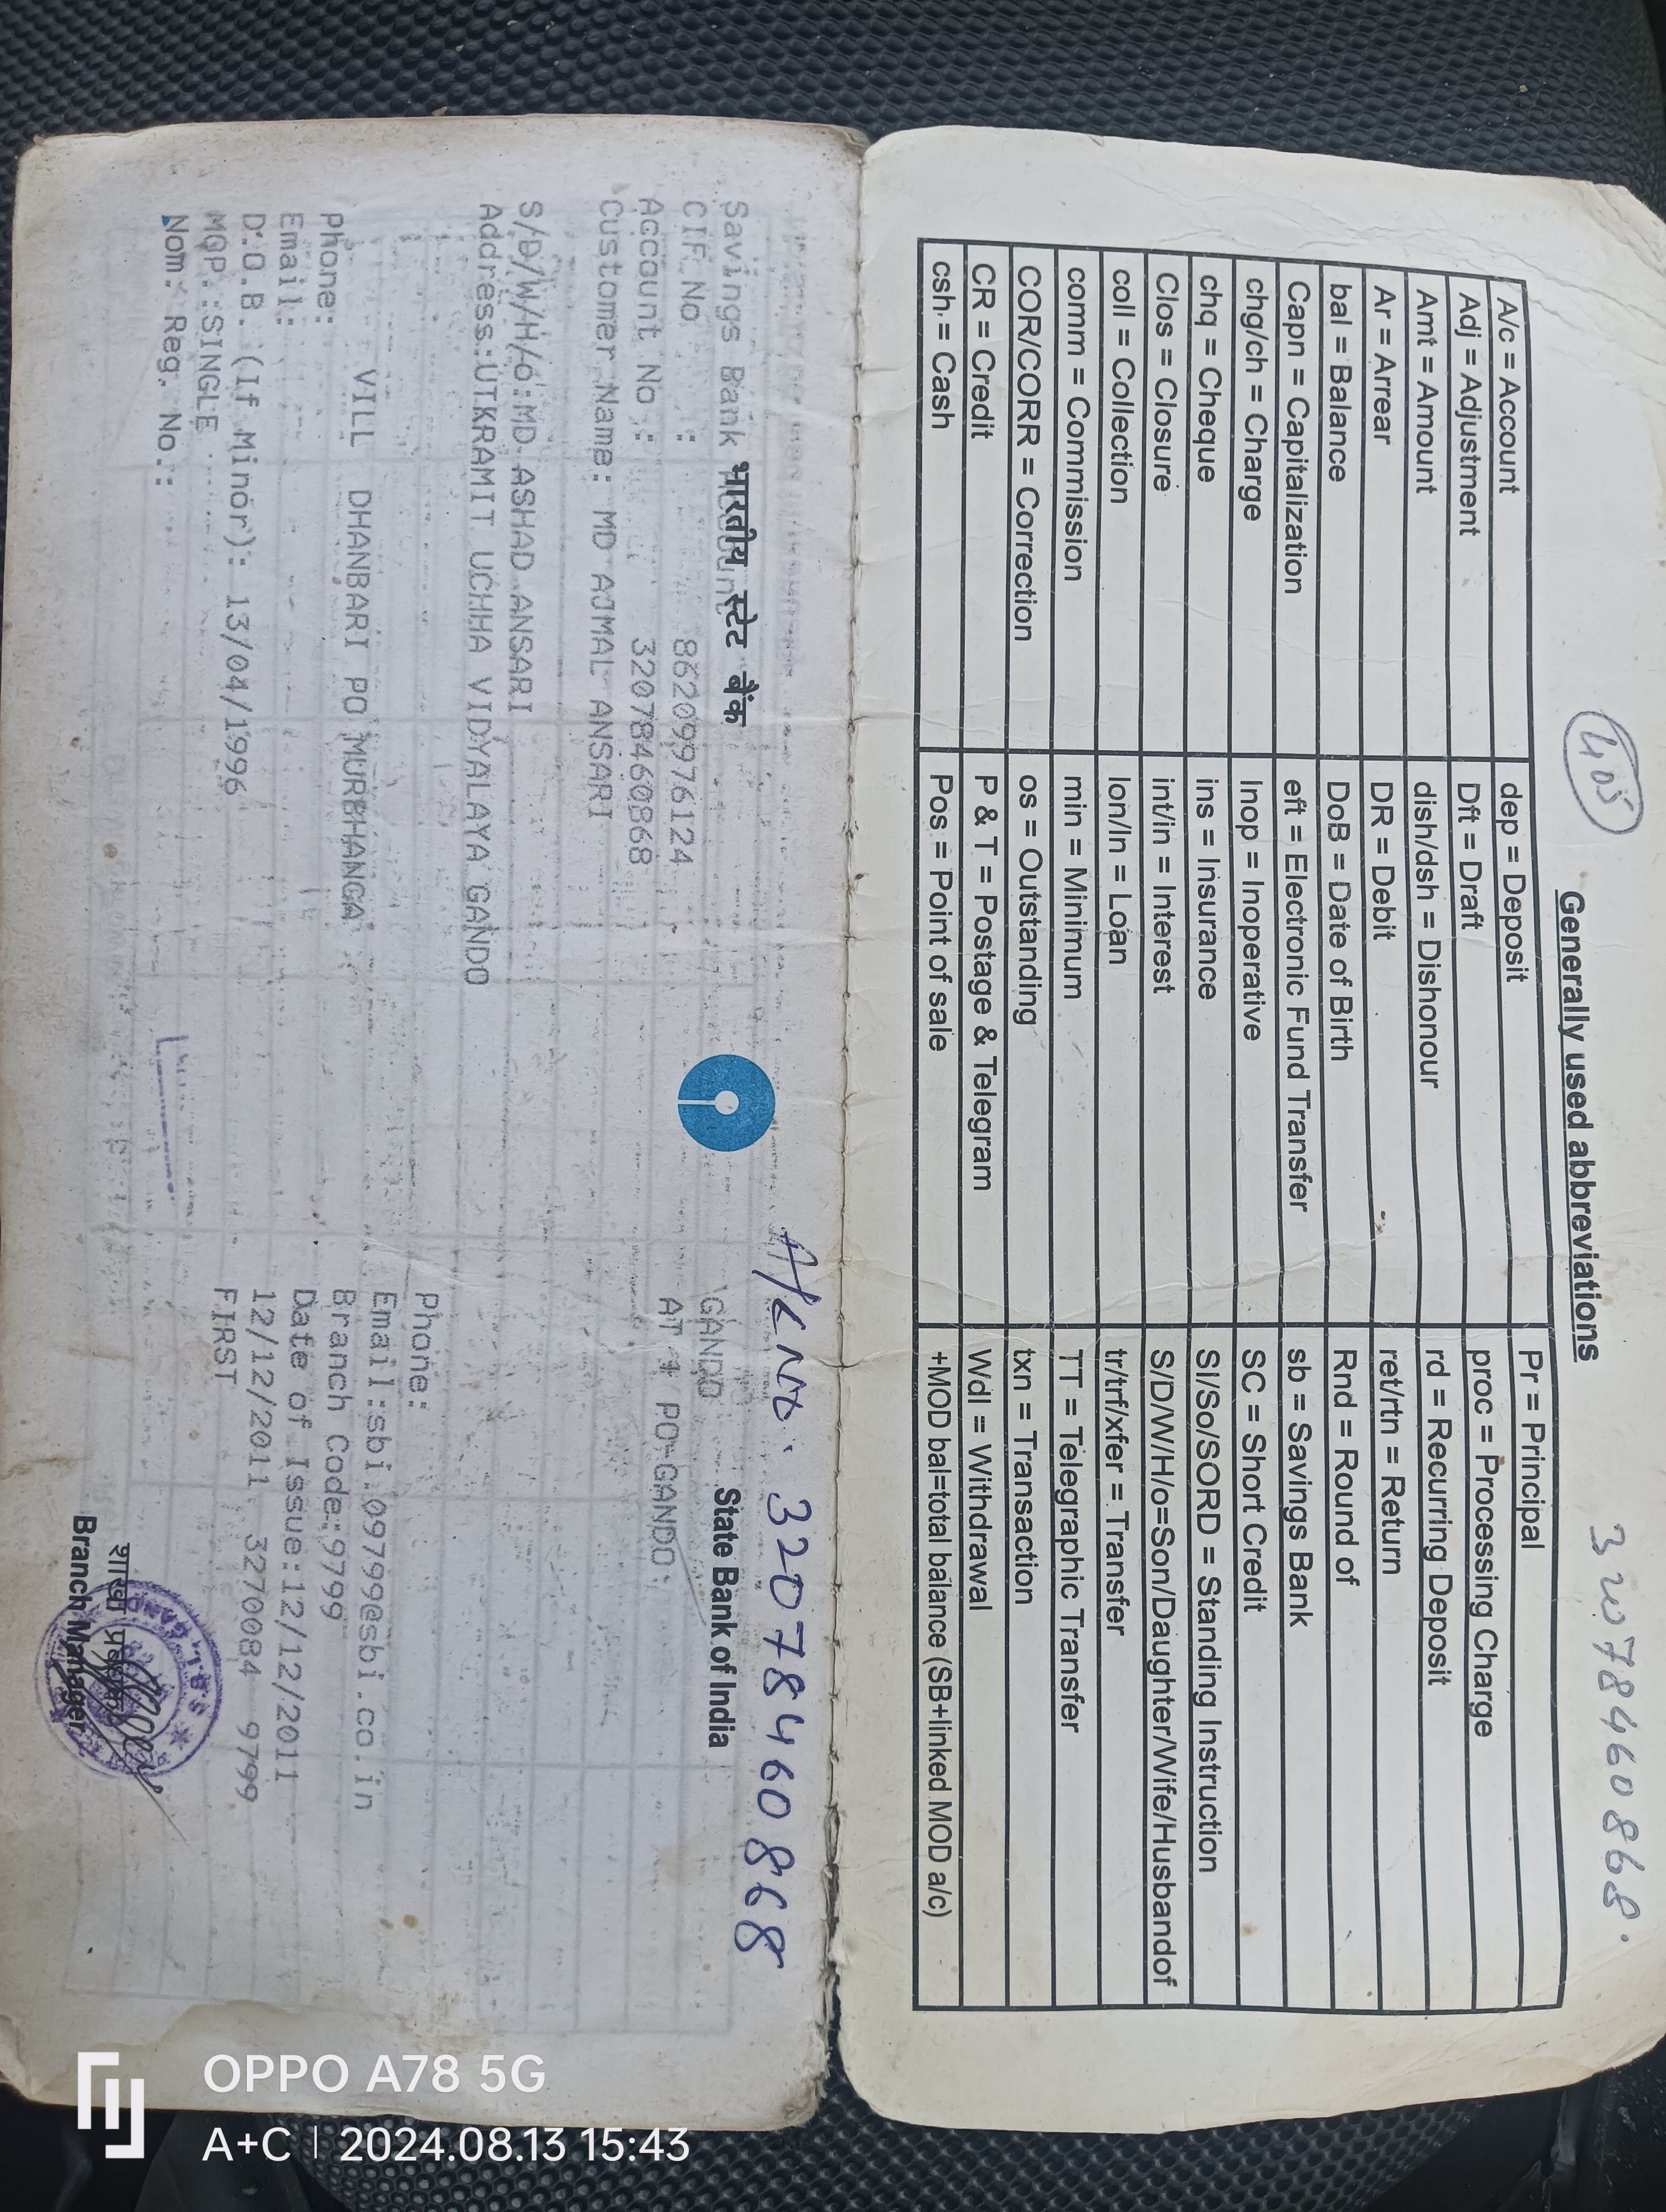 405
32078460868.
Generally used abbreviations
A/c = Account	dep = Deposit	Pr = Principal
Adj = Adjustment	Dft = Draft	proc = Processing Charge
Amt = Amount	dish/dsh = Dishonour	rd = Recurring Deposit
Ar = Arrear	DR = Debit	ret/rtn = Return
bal = Balance	DoB = Date of Birth	Rnd = Round of
Capn = Capitalization	eft = Electronic Fund Transfer	sb = Savings Bank
chg/ch = Charge	Inop = Inoperative	SC = Short Credit
chq = Cheque	ins = Insurance	SI/So/SORD = Standing Instruction
Clos = Closure	int/in = Interest	S/D/W/H/o=Son/Daughter/Wife/Husbandof
coll = Collection	lon/ln = Loan	tr/trf/xfer = Transfer
comm = Commission	min = Minimum	TT = Telegraphic Transfer
COR/CORR = Correction	os = Outstanding	txn = Transaction
CR = Credit	P & T = Postage & Telegram	Wdl = Withdrawal
csh = Cash	Pos = Point of sale	+MOD bal=total balance (SB+linked MOD a/c)
A/c No. 32078460868
भारतीय स्टेट बैंक	State Bank of India
Savings Bank Account	GANDO
CIF No : 86209976124	AT + PO-GANDO
Account No : 32078460868
Customer Name: MD AJMAL ANSARI
S/D/W/H/o:MD ASHAD ANSARI
Address:UTKRAMIT UCHHA VIDYALAYA GANDO
Phone:
Email:sbi.09799@sbi.co.in
VILL DHANBARI PO MURBHANGA	Branch Code:9799
Phone:	Date of Issue:12/12/2011
Email:	12/12/2011 3270084 9799
D.O.B. (If Minor): 13/04/1996	FIRST
MOP.:SINGLE
Nom. Reg. No.:
शाखा प्रबंधक
Branch Manager
OPPO A78 5G
A+C | 2024.08.13 15:43